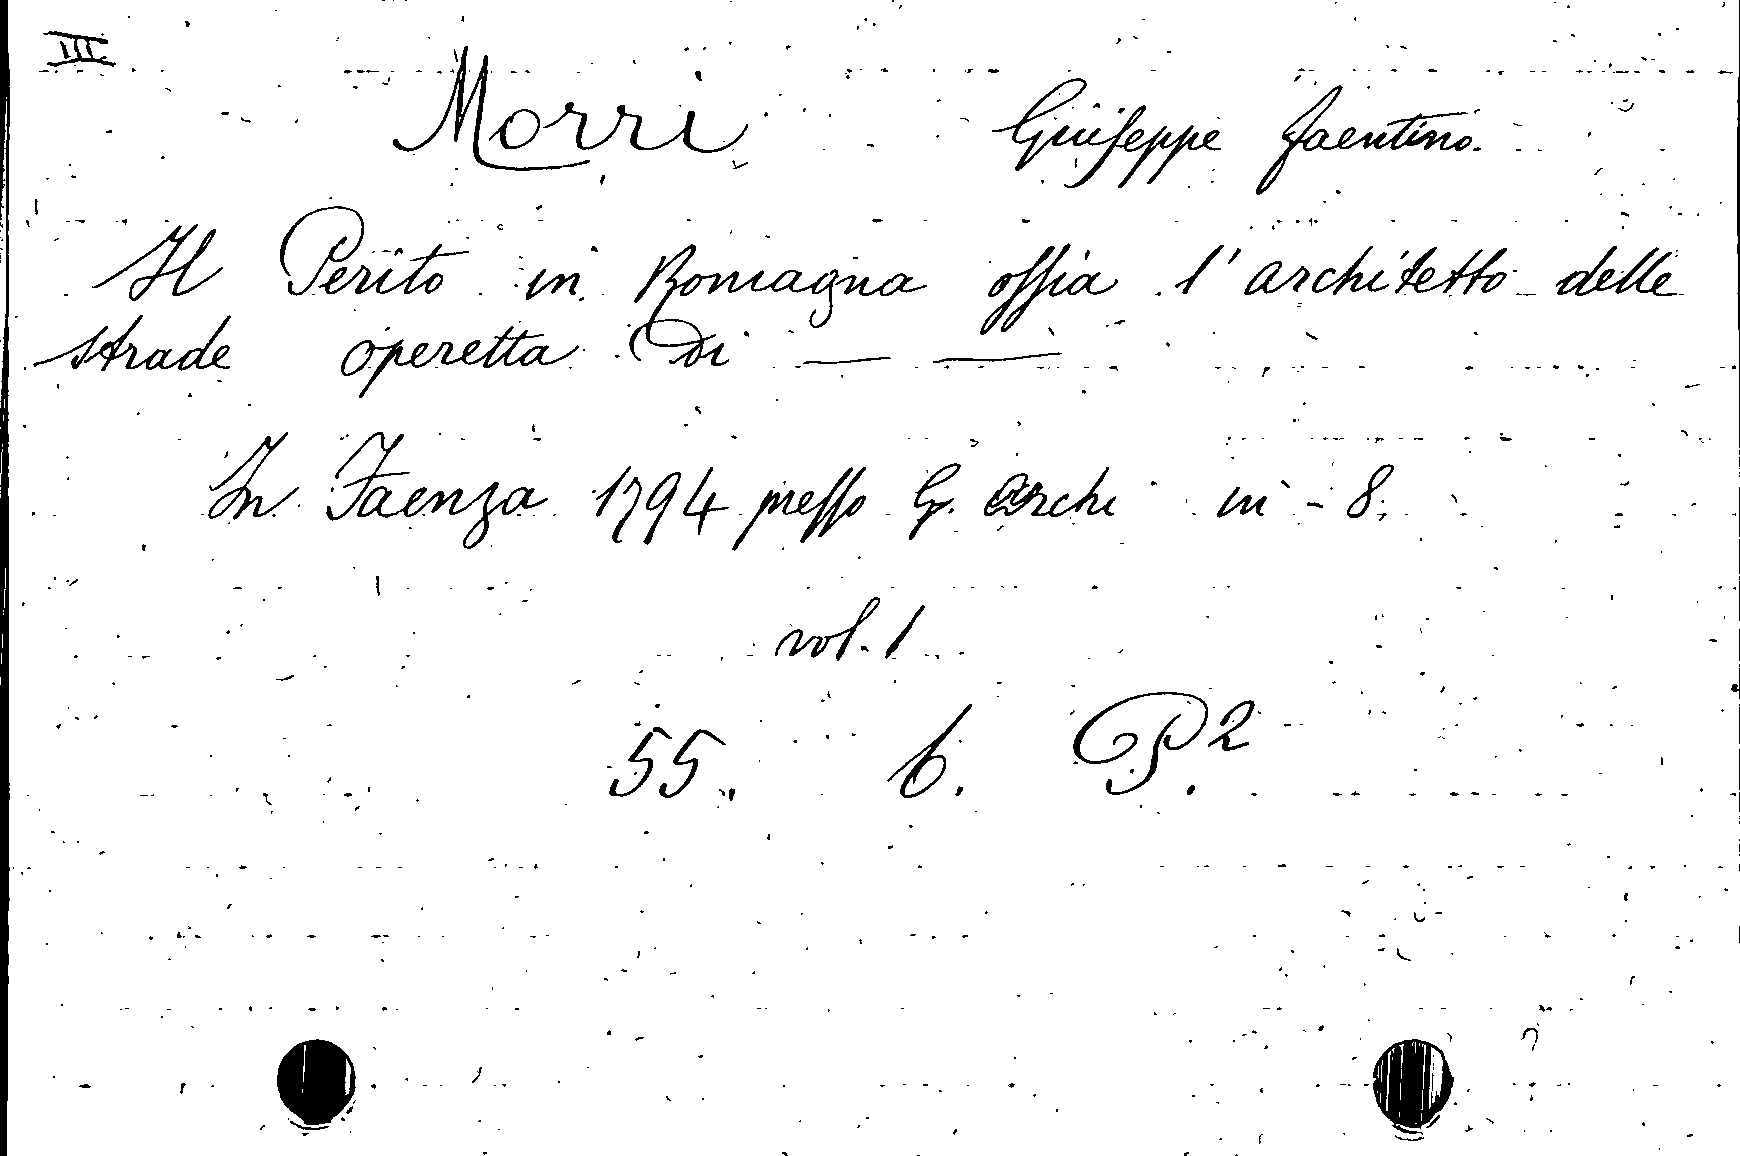 III.
Morri Giuseppe faentino.
Il Perito in Romagna ossia l'architetto delle
strade operetta di — —
In Faenza 1794 presso G. Archi in-8.
vol. 1
55. 6. P.²